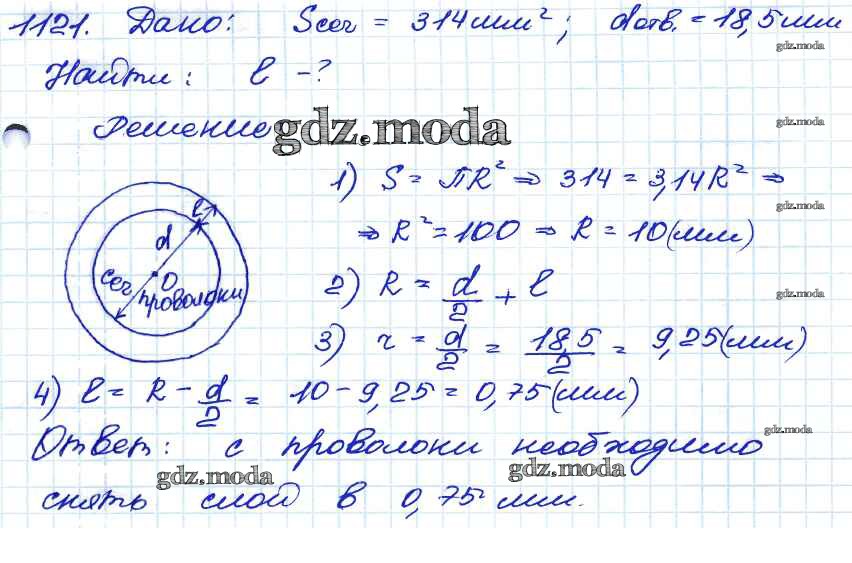 1121. Дано: Sсег = 314 мм²; dотв. = 18,5 мм
gdz.moda
Найти: ℓ - ?
Решение
gdz.moda
gdz.moda
1) S = πR² ⇒ 314 = 3,14R² ⇒
gdz.moda
⇒ R² = 100 ⇒ R = 10 (мм)
ℓ
d
O
Сег проволоки
2) R = d/2 + ℓ
gdz.moda
3) r = d/2 = 18,5/2 = 9,25 (мм)
4) ℓ = R - d/2 = 10 - 9,25 = 0,75 (мм)
gdz.moda
Ответ: с проволоки необходимо
gdz.moda
gdz.moda
снять слой в 0,75 мм.